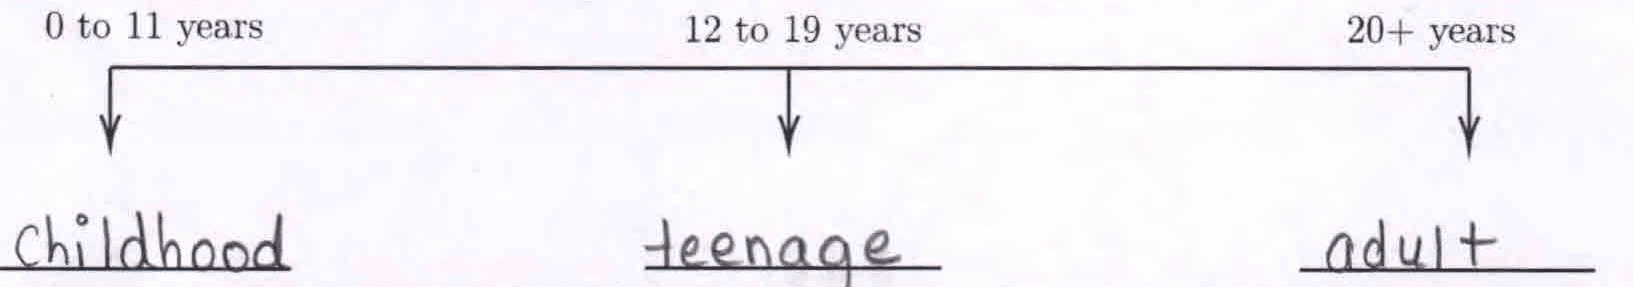 0 to 11 years 12 to 19 years 20+ years
childhood teenage adult